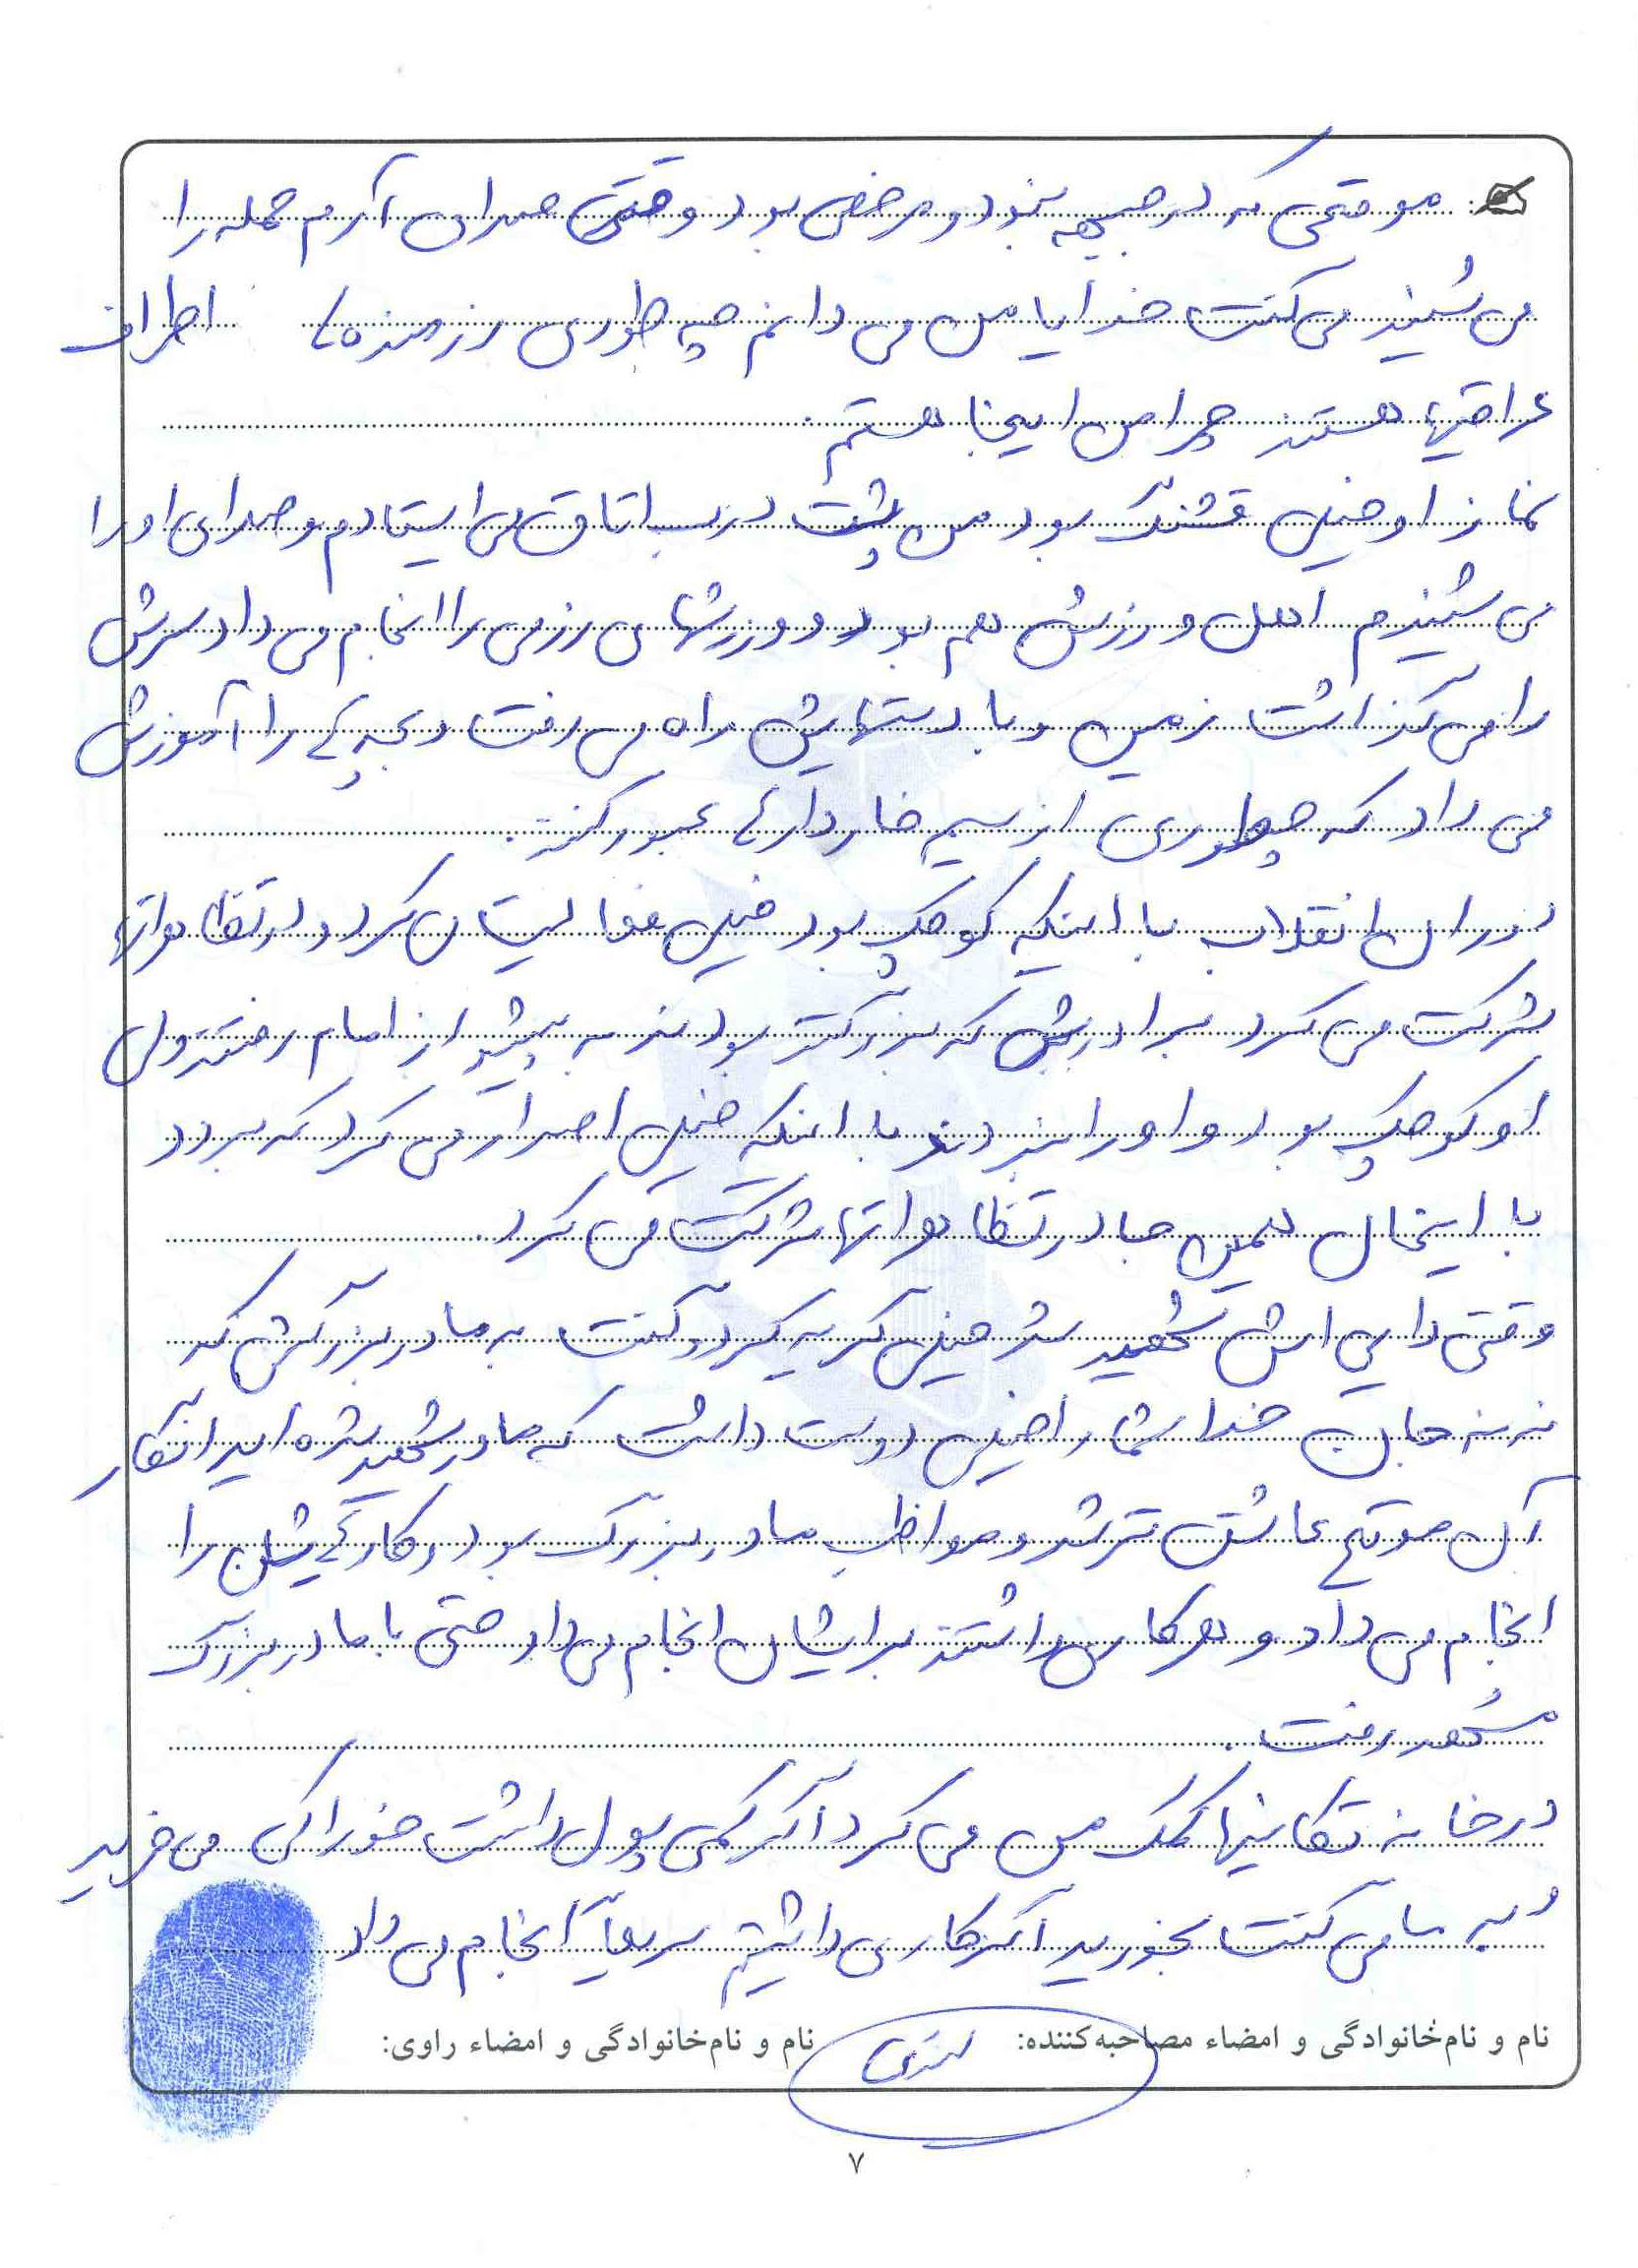 موقعی که در جبهه نبود و مرخصی بود وقتی صدای آژیر حمله را
می شنید می گفت خدایا من می دانم چه طوری رزمنده ها اطراف
عراقیها هستند چرا من اینجا هستم.
نماز او خیلی قشنگ بود من پشت درب اتاق می ایستادم و صدای او را
می شنیدم اهل ورزش هم بود و ورزشهای رزمی را انجام می داد سرش
را می گذاشت زمین و با دستهایش راه می رفت و بچه ها را آموزش
می داد که چطوری از سیم خاردارها عبور کنند.
دوران انقلاب با اینکه کوچک بود خیلی فعالیت می کرد و در تظاهراتها
شرکت می کرد برادرش که بزرگتر بودند به پیشواز امام رفتند ولی
او کوچک بود و او را نبردند با اینکه خیلی اصرار می کرد که برود
با اینحال همین جا در تظاهراتها شرکت می کرد.
وقتی دایی اش شهید شد خیلی گریه کرد و گفت به مادربزرگش که
ننه جان خدا شما را خیلی دوست داشت که مادر شهید شده اید انگار
آن موقع عاشق تر شد و مواظب مادربزرگ بود و کارهایشان را
انجام می داد و هر کاری داشتند برایشان انجام می داد حتی با مادربزرگ
مشهد رفت.
در خانه تکانیها کمک من می کرد اگر کمی پول داشت خوراکی می خرید
و به ما می گفت بخورید اگر کاری داشتیم سریعاً انجام می داد
نام و نام‌خانوادگی و امضاء مصاحبه‌کننده: نام و نام‌خانوادگی و امضاء راوی:
۷